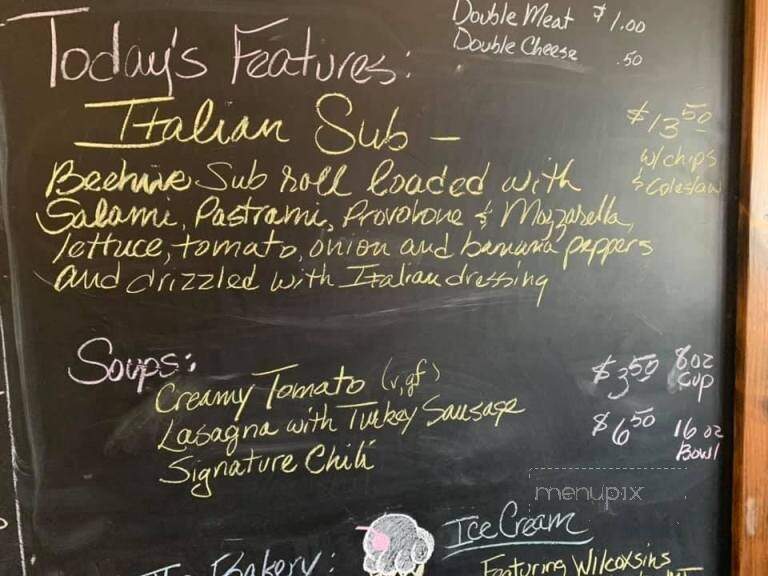 Double Meat $1.00
Double Cheese .50
Today's Features:
Italian Sub - $13.50
w/chips
& Coleslaw
Beehive Sub roll loaded with
Salami, Pastrami, Provolone & Mozzarella,
lettuce, tomato, onion and banana peppers
and drizzled with Italian dressing
Soups:
Creamy Tomato (v, gf)
Lasagna with Turkey Sausage
Signature Chili
$3.50 8 oz Cup
$6.50 16 oz Bowl
menupix
Ice Cream
Bakery:
Featuring Wilcoxsins